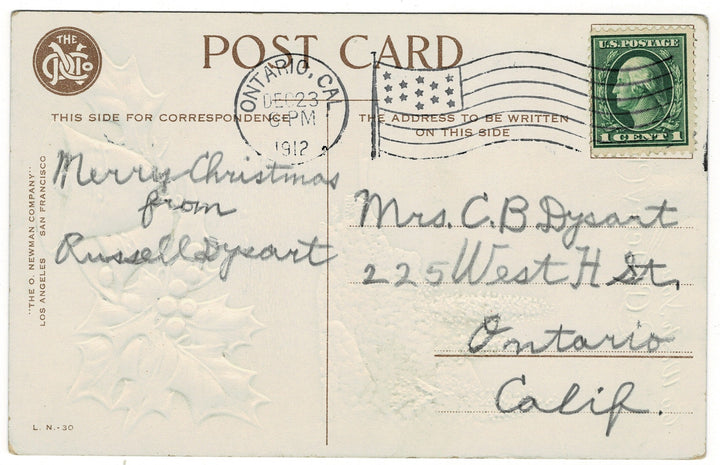 THE
O N Co
POST CARD
ONTARIO, CAL
DEC 23
PM
1912
U.S. POSTAGE
1 CENT 1
THIS SIDE FOR CORRESPONDENCE
THE ADDRESS TO BE WRITTEN
ON THIS SIDE
Merry Christmas
from
Russell Dysart
Mrs. C. B Dysart
225 West H St,
Ontario
Calif.
"THE O. NEWMAN COMPANY"
LOS ANGELES SAN FRANCISCO
L. N.-30